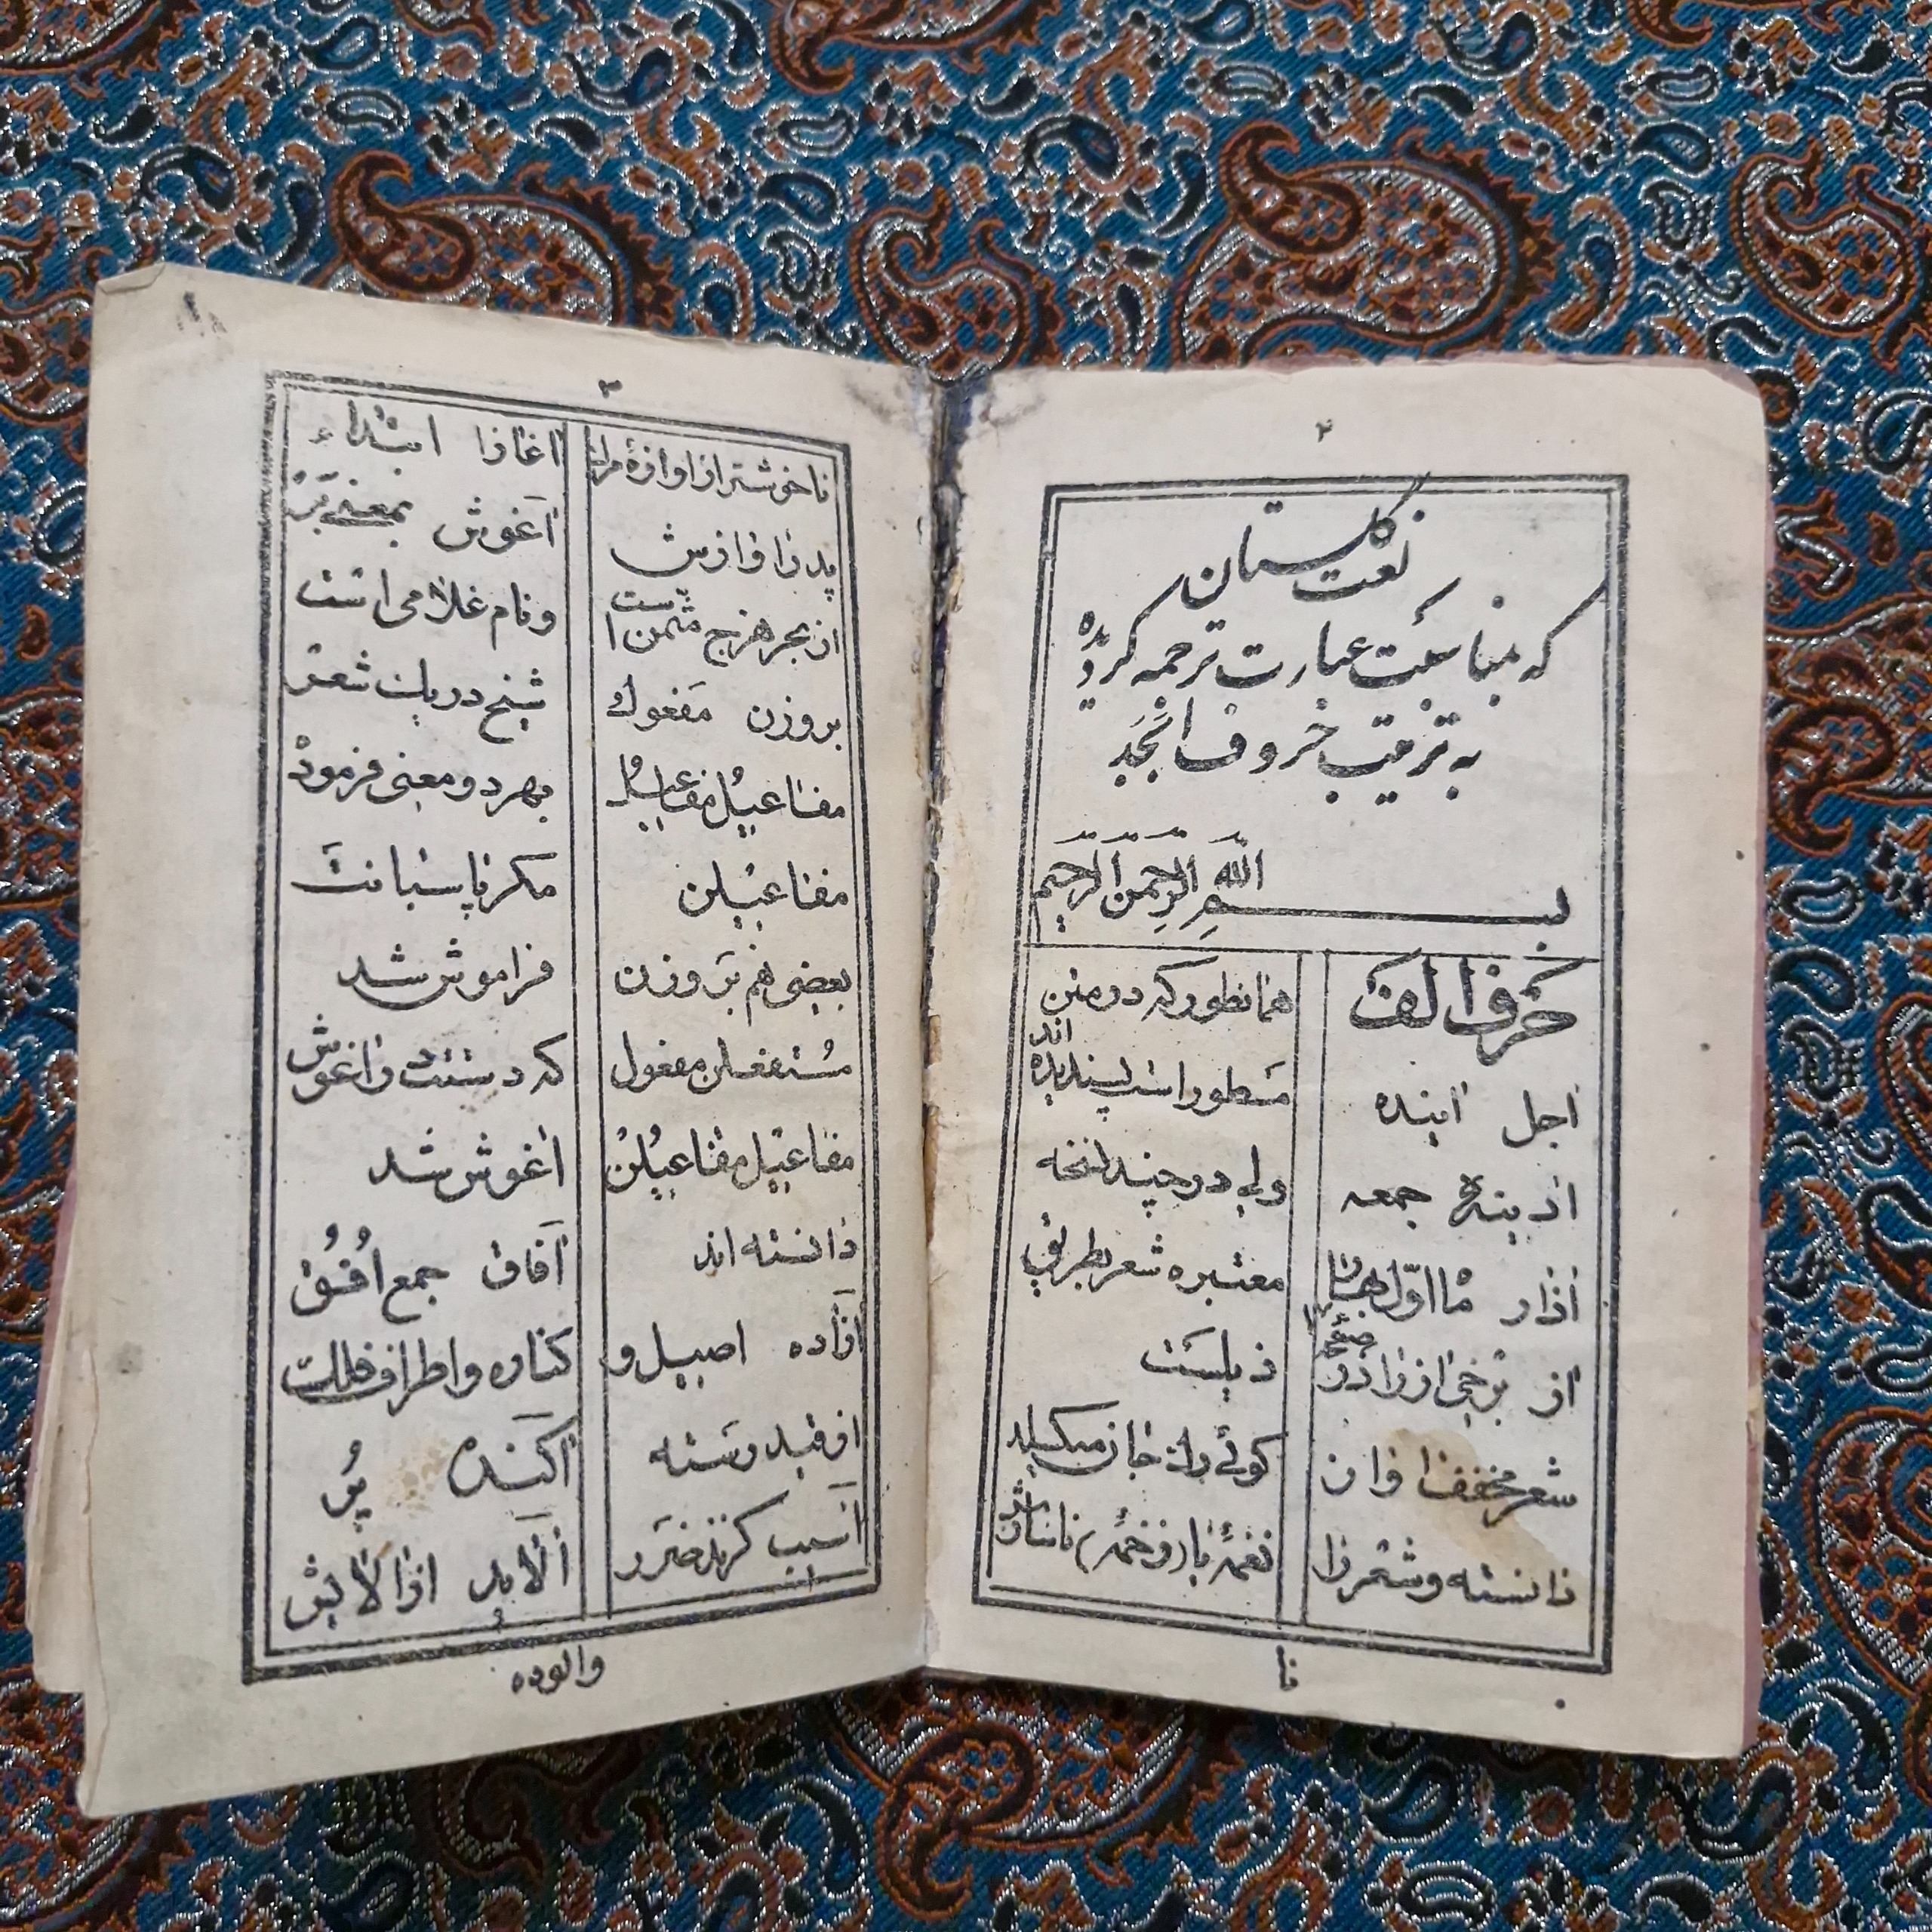 ۲
لغت گلستان
که بمناسبت عبارت ترجمه کرده
به ترتیب حروف ابجد
بسم الله الرحمن الرحیم
حرف الف
اجل آینده
آدینه جمعه
آذار ماه اول بهار
از برخی از را در صفحه ۱۳
شعر مخفف وان
دانسته و شعر را
همانطور که در متن
مسطور است پسندیده اند
ولی در چند نسخه
معتبره شعر بطریق
ذیلست
گوئی رک جان میکسلد
نغمهٔ با (زخمهٔ) ناسازش
نا
۳
ناخوشتر از اوازهٔ مرک
پدر اوازش
از بحر هزج مثمن است
بر وزن مفعول
مفاعیل مفاعیل
مفاعیلن
بعضی هم بر وزن
مستفعلن مفعول
مفاعیل مفاعیلن
دانسته اند
آزاده اصیل و
از قید رسته
آسیب کزند ضرر
اغاز ابتداء
آغوش بمعنی بر
و نام غلامی است
شیخ در یک شعر
بهر دو معنی فرمود
مکر پاسبانت
فراموش شد
که دستت در اغوش
اغوش شد
آفاق جمع افق
کناره و اطراف فلک
آکنده پر
آلاید از الایش
والوده